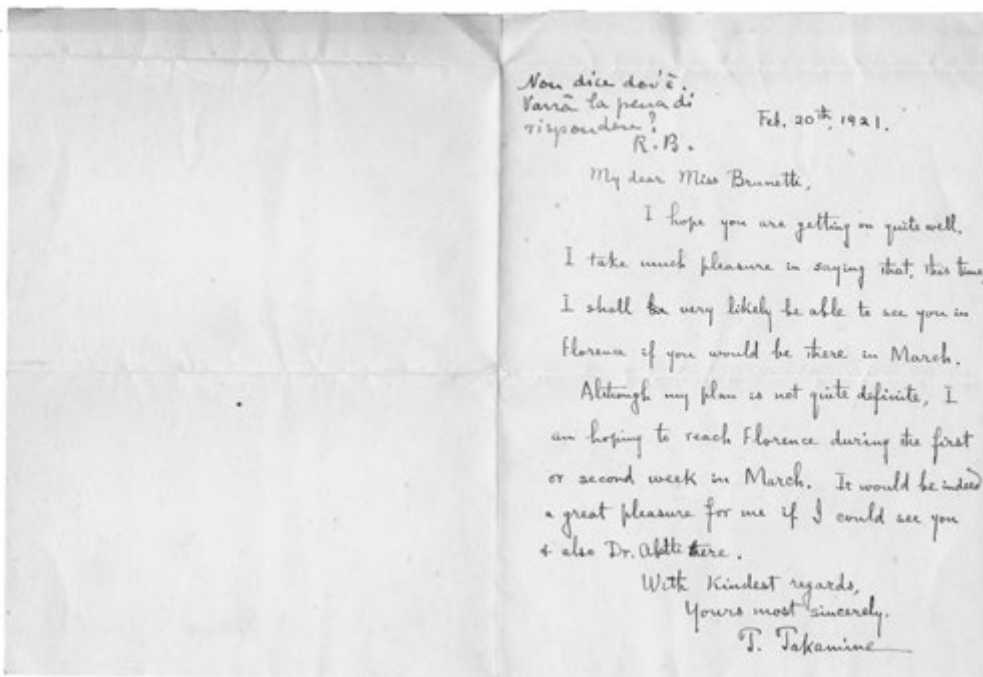 Non dice dov'è.
Varrà la pena di
rispondere?
R.B.
Feb. 20th, 1921.
My dear Miss Brunetti,
I hope you are getting on quite well.
I take much pleasure in saying that, this time,
I shall very likely be able to see you in
Florence if you would be there in March.
Although my plan is not quite definite, I
am hoping to reach Florence during the first
or second week in March. It would be indeed
a great pleasure for me if I could see you
& also Dr. Abetti there.
With kindest regards,
Yours most sincerely.
T. Takamine